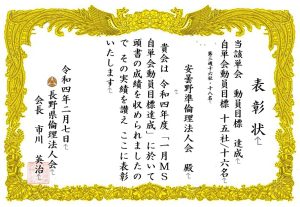 表彰状
当該単会 動員目標 達成
自単会動員目標 十五社十六名
安曇野準倫理法人会 殿
貴会は 令和四年度「一月MS
自単会動員目標達成」に於いて
頭書の成績を収められましたの
で その実績を讃え ここに表彰
いたします
令和四年二月七日
長野県倫理法人会
会長 市川 英治